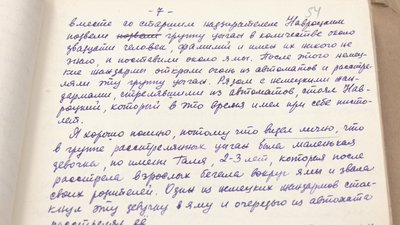 - 7 -
54
вместе со старшим надзирателем Навроцким
подвели подвели группу цыган в количестве около
двадцати человек, фамилий и имен их никого не
знаю, и поставили около ямы. После этого немец-
кие жандармы открыли огонь из автоматов и расстре-
ляли эту группу цыган. Рядом с немецкими жан-
дармами, стрелявшими из автоматов, стоял Нав-
роцкий, который в это время имел при себе писто-
лет.
Я хорошо помню, потому что видел лично, что
в группе расстрелянных цыган была маленькая
девочка, по имени Галя, 2-3 лет, которая после
расстрела взрослых бегала вокруг ямы и звала
своих родителей. Один из немецких жандармов стол-
кнул эту девочку в яму и очередью из автомата
расстрелял ее